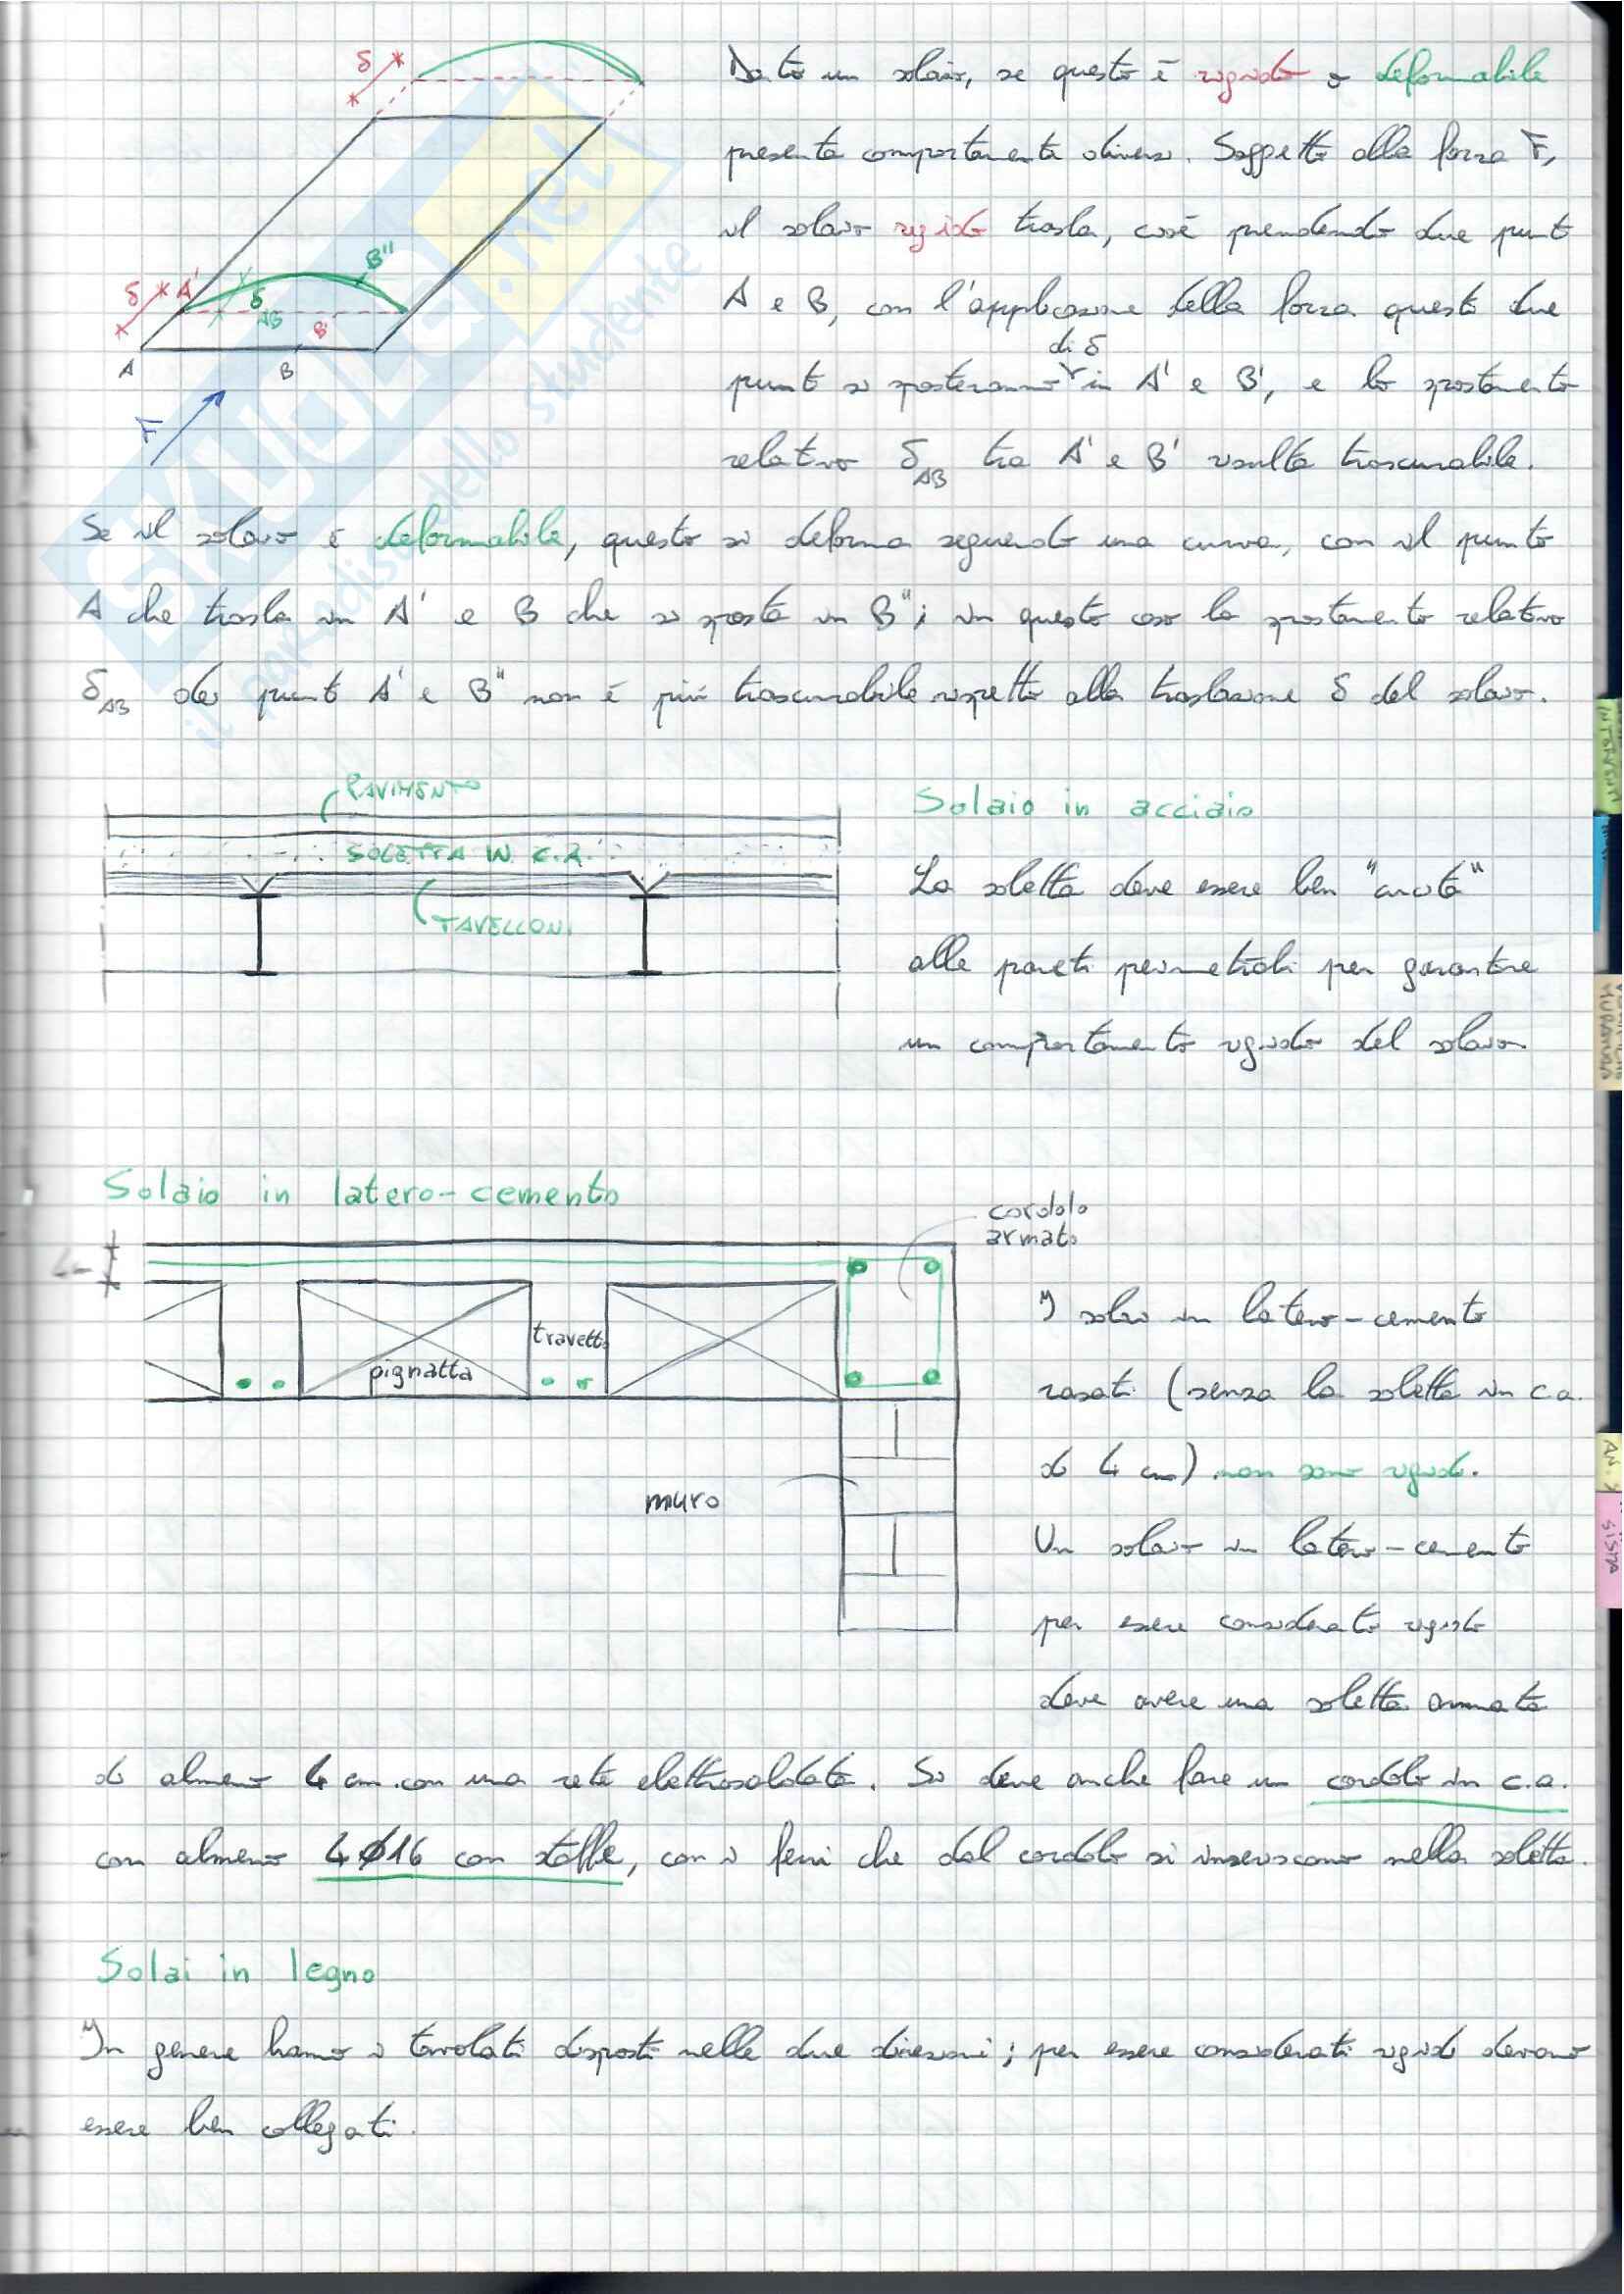 Dato un solaio, se questo è rigido o deformabile
presenta comportamenti diversi. Soggetto alla forza F,
il solaio rigido trasla, cioè prendendo due punti
A e B, con l'applicazione della forza questi due
di δ
punti si sposteranno in A' e B', e lo spostamento
relativo δAB tra A' e B' risulta trascurabile.
δ
δ A' δAB B' B''
A B
F
Se il solaio è deformabile, questo si deforma seguendo una curva, con il punto
A che trasla in A' e B che si sposta in B''; in questo caso lo spostamento relativo
δAB dei punti A' e B'' non è più trascurabile rispetto alla traslazione δ del solaio.
PAVIMENTO
SOLETTA IN C.A.
TAVELLONI
Solaio in acciaio
La soletta deve essere ben "cucita"
alle pareti perimetrali per garantire
un comportamento rigido del solaio.
Solaio in latero-cemento
cordolo
armato
4
travetto
pignatta
muro
I solai in latero-cemento
rasati (senza la soletta in c.a.
di 4 cm) non sono rigidi.
Un solaio in latero-cemento
per essere considerato rigido
deve avere una soletta armata
di almeno 4 cm con una rete elettrosaldata. Si deve anche fare un cordolo in c.a.
con almeno 4Ø16 con staffe, con i ferri che dal cordolo si inseriscono nella soletta.
Solai in legno
In genere hanno i tavolati disposti nelle due direzioni; per essere considerati rigidi devono
essere ben collegati.
SKUOLA.net
il paradiso dello studente
INTERVENTI
MURATURA
SISMA